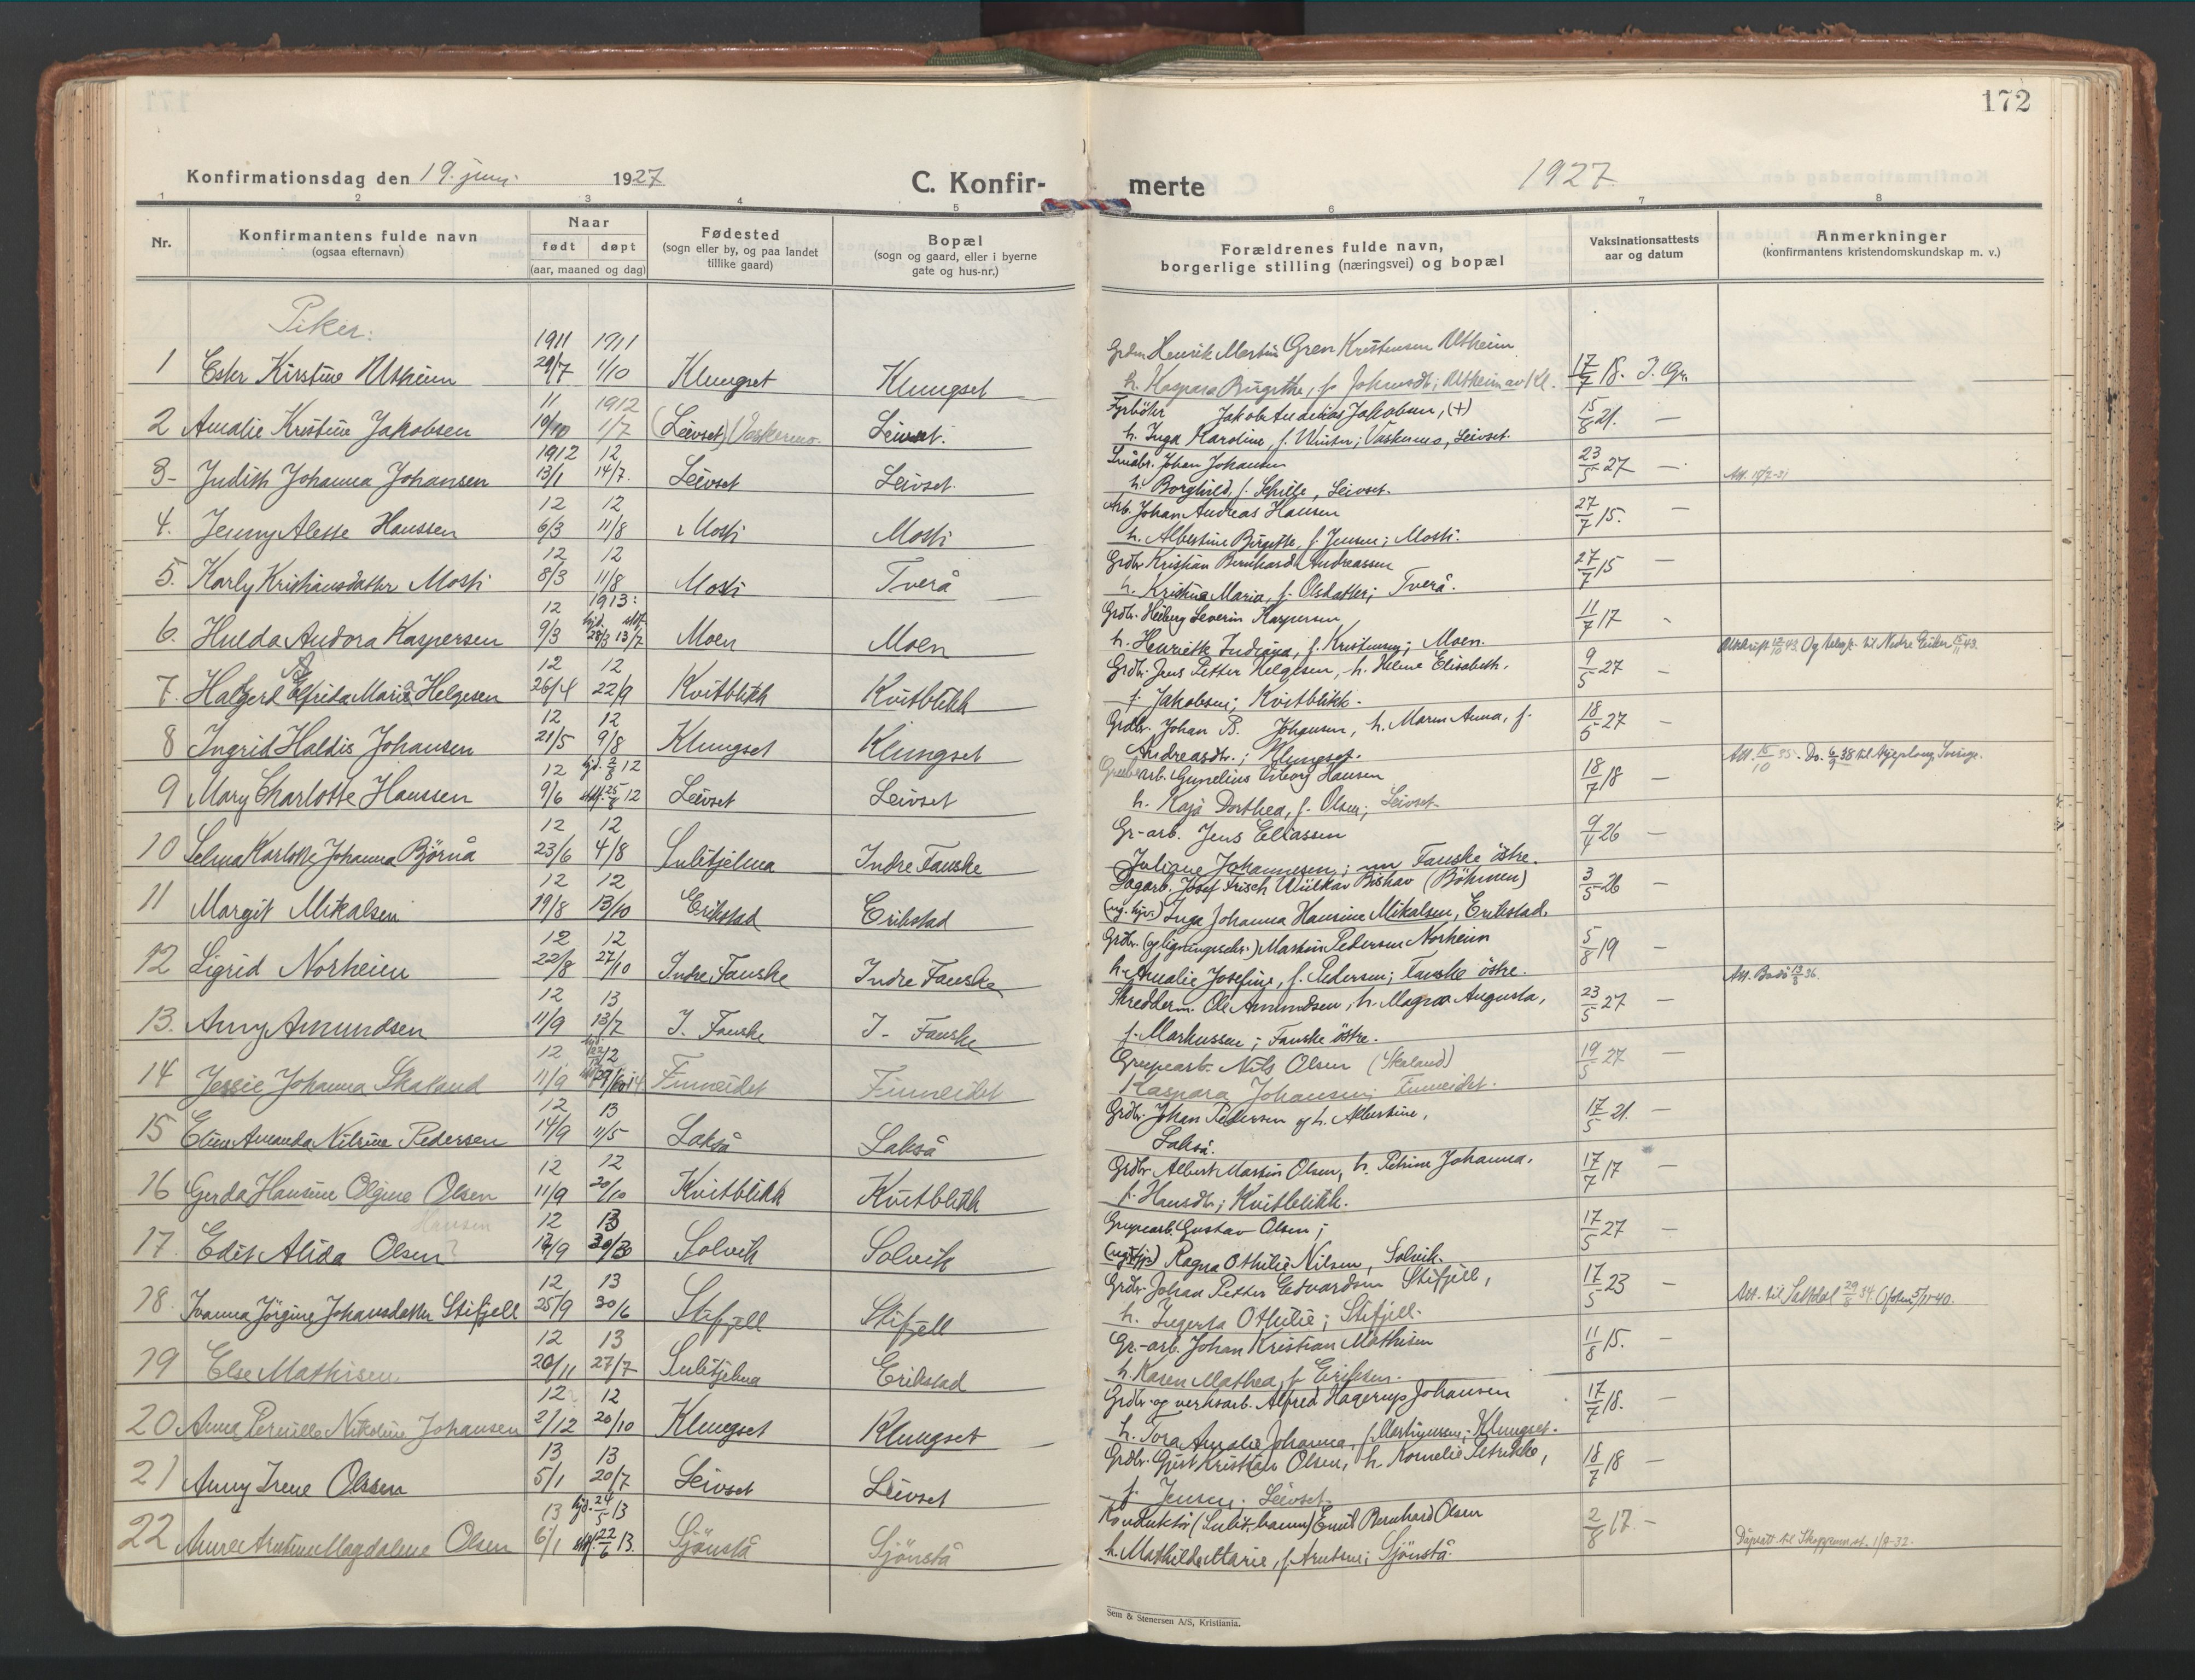 172
Konfirmationsdag den 19. juni 1927
C. Konfir-
merte
1927
1 2 3 4 5 6 7 8
Nr.
Konfirmantens fulde navn
(ogsaa efternavn)
Naar
født døpt
(aar, maaned og dag)
Fødested
(sogn eller by, og paa landet
tillike gaard)
Bopæl
(sogn og gaard, eller i byerne
gate og hus-nr.)
Forældrenes fulde navn,
borgerlige stilling (næringsvei) og bopæl
Vaksinationsattests
aar og datum
Anmerkninger
(konfirmantens kristendomskundskap m. v.)
Piker:
1911 1911
Henrik Martin Gren Kristensen Altheim
1 Ester Kirstine Altheim 29/7 1/10 Klungset Klungset
h. Kaspara Birgithe, f. Johnsdt; Altheim av Kl. 17/7 18. I. Gr.
11 1912
Fyrbøter Jakob Andreas Jakobsen, (+)
2 Amalie Kristine Jakobsen 19/10 1/7 (Leivset) (Vaskermo. Leivset.
h. Inga Karoline, f. Winter; Vaskermo, Leivset. 15/8 21. —
1912 12
Småbr. Johan Johansen
3- Judith Johanna Johansen 13/1 14/7. Leivset Leivset.
h. Borghild, f. Schille, Leivset. 23/5 27 —
12 12
Arb. Johan Andreas Hansen
4. Jenny Alette Hanssen 6/3 11/8 Mosti Mosti
h. Albertine Birgitte, f. Jensen; Mosti. 27/7 15. —
12 12
Grdbr Kristian Bernhard Andreassen
5. Karly Kristiansdatter Mosti 8/3 11/8 Mosti Tverå
h. Kristine Maria, f. Olsdatter; Tverå. 27/7 15 —
12 1913: hjd. stdf.
Grdbr. Heiberg Severin Kaspersen,
6. Hulda Andora Kaspersen 9/3 28/3 13/7 Moen Moen
h. Henriette Indiana, f. Kristensen; Moen. 11/7 17
Utskrift 12/10 43. Og til Nedre Eiker 15/11 43.
12 12
Grdbr. Jens Petter Helgesen, h. Helene Elisabeth,
7. Halgerd Elfrida Marie Helgesen 26/4 22/9 Kvitblikk Kvitblikk
f. Jakobsen; Kvitblikk. 9/5 27 —
12 12
Grdbr. Johan B. Johansen, h. Maren Anna, f.
8 Ingrid Haldis Johansen 21/5 9/8 Klungset Klungset
Andreasdtr.; Klungset. 18/5 27 —
Att. 15/10 35. Do. 6/9 38 til Arjeplong, Sverige.
12 hjd. 2/8 12
Grubearb. Gunelius Viborg Hansen
9 Mary Charlotte Hanssen 9/6 stdf. 25/8 12 Leivset Leivset
h. Kaja Dorthea, f. Olsen; Leivset 18/7 18 —
12 12
Gr-arb. Jens Eliassen
10 Selma Karlotte Johanna Björnå 23/6 4/8 Sulitjelma Indre Fauske
Juliane Johannesen; nu Fauske östre. 9/4 26 —
12 12
Sagarb. Josef Frisch Bishav (Böhmen)
11 Margit Mikalsen 19/8 13/10 Erikstad Erikstad
(ug. hjv.) Inga Johanna Hansine Mikalsen, Erikstad. 3/5 26 —
12 12
Grdbr. (og ligningssekr.) Martin Pedersen Norheim
12 Sigrid Norheim 22/8 27/10 Indre Fauske Indre Fauske
h. Amalie Josefine, f. Pedersen; Fauske östre. 5/8 19 —
Att. Bodö 13/8 36.
12 13
Skredderm. Ole Amundsen, h. Magna Augusta,
13. Anny Amundsen 11/9 13/7 I. Fauske I- Fauske
f. Markussen; Fauske östre. 23/5 27 —
12
Grubearb. Nils Olsen (Skaland)
14 Jessie Johanna Skaland 11/9 Finneidet Finneidet
Kaspara Johansen; Finneidet. 19/5 27 —
12 13
Grdbr. Johan Pedersen og h. Albertine,
15 Elien Amanda Nilsine Pedersen 14/9 11/5 Lakså Lakså
Lakså. 17/5 21. —
12 12
Grdbr. Albert Martin Olsen, h. Petrine Johanna,
16 Gerda Hansine Olgine Olsen 11/9 20/10 Kvitblikk Kvitblikk
f. Hansdtr; Kvitblikk. 17/7 17 —
Hansen
12 13
Grubearb. Gustav Olsen;
17. Edit Alida Olsen? 14/9 Solvik Solvik
Ragna Othilie Nilsen, Solvik. 17/5 27 —
12 13
Grdbr. Johan Petter Edvardsen Stifjell,
18. Ivanna Jörgine Johansdatter Stifjell 25/9 30/6 Stifjell Stifjell
h. Ingerta Othilie; Stifjell. 17/5 23 —
Att. til Saltdal 29/8 34. 5/11-40.
12 13
Gr.-arb. Johan Kristian Mathisen
19 Else Mathisen 20/11 27/7 Sulitjelma Erikstad
h. Karen Mathea, f. Eriksen. 11/8 15. —
12 12
Grdbr. og verksarb. Alfred Hagerup Johansen
20. Anna Pernille Nikoline Johansen 2/12 20/10 Klungset Klungset
h. Tora Amalie Johanna, f. Martinussen; Klungset. 17/7 18. —
13 13
Grdbr. Gjert Kristian Olsen, h. Kornelie Petrikke,
21 Anny Irene Olssen 5/1 20/7 Leivset Leivset
f. Jensen. Leivset. 18/7 18 —
13 hjd. 24/5 13
Konduktör (Sulit.banen) Emil Bernhard Olsen
22 Anne Arntine Magdalene Olsen 6/1 stdf. 22/6 13. Sjönstå Sjönstå
h. Mathilde Marie, f. Arntsen; Sjönstå. 2/8 17. —
Dåpsatt. til Skoppum st. 1/9-32.
Sem & Stenersen A/S, Kristiania.